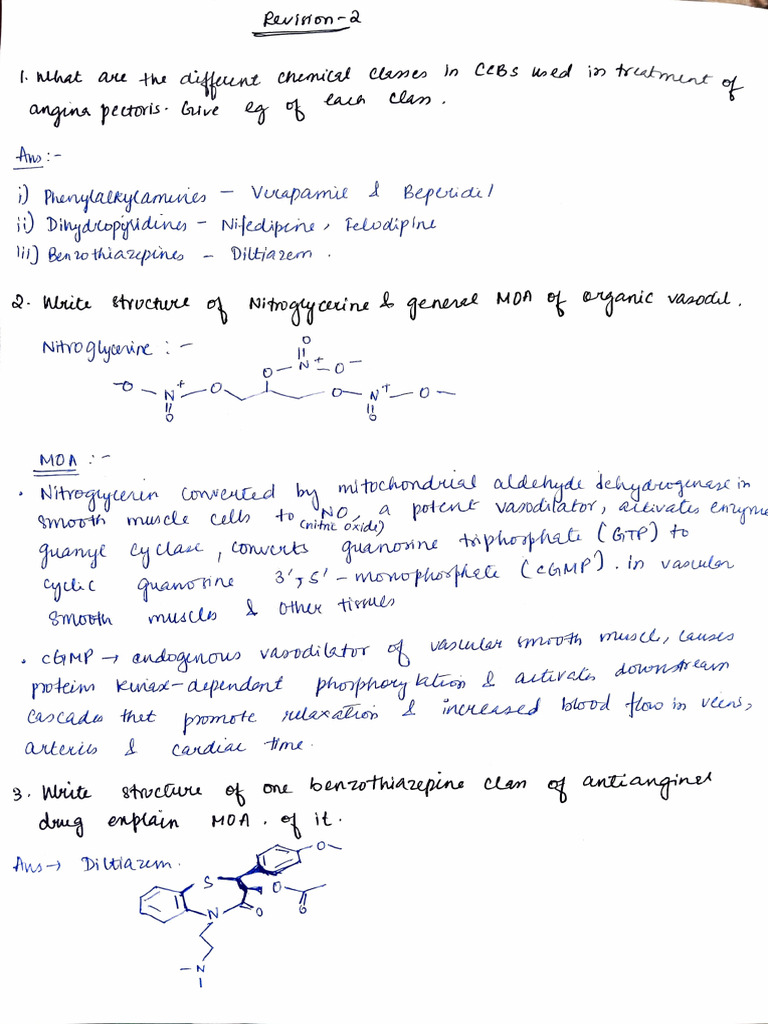 Revision-2
1. What are the different chemical classes in CCBs used in treatment of
angina pectoris. Give eg of each class.
Ans :-
i) Phenylalkylamines – Verapamil & Beperidil
ii) Dihydropyridines – Nifedipine, Felodipine
iii) Benzothiazepines – Diltiazem.
2. Write structure of Nitroglycerine & general MOA of organic vasodil.
Nitroglycerine :-
O
O – N+ – O –
-O – N+ – O O – N+ – O –
O O
MOA :-
• Nitroglycerin converted by mitochondrial aldehyde dehydrogenase in
smooth muscle cells to NO, a potent vasodilator, activates enzyme
(nitric oxide)
guanyl cyclase, converts guanosine triphosphate (GTP) to
cyclic guanosine 3',5'-monophosphate (cGMP). in vascular
smooth muscles & other tissues
• cGMP → endogenous vasodilator of vascular smooth muscle, causes
proteins kinax-dependent phosphorylation & activates downstream
cascades thet promote relaxation & increased blood flow in veins,
arteries & cardiac time.
3. Write structure of one benzothiazepine class of antianginal
drug explain MOA. of it.
Ans → Diltiazem.
O
S O
N O O
N